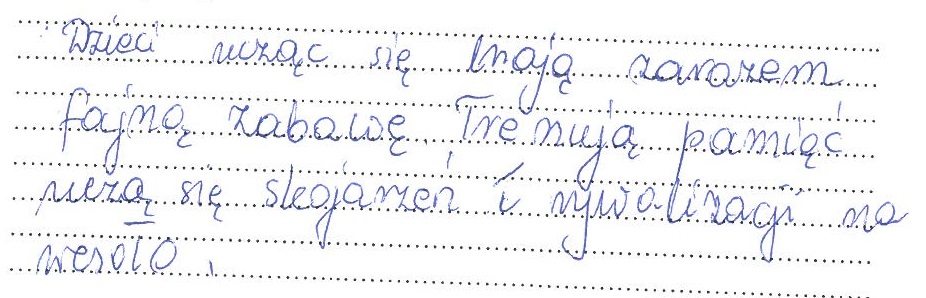 Dzieci ucząc się mają zarazem
fajną zabawę. Trenują pamięć
uczą się skojarzeń i rywalizacji na
wesoło.